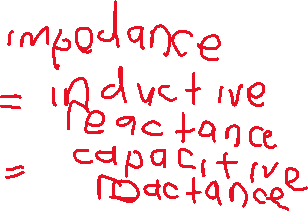 impedance
= inductive
reactance
= capacitive
reactance